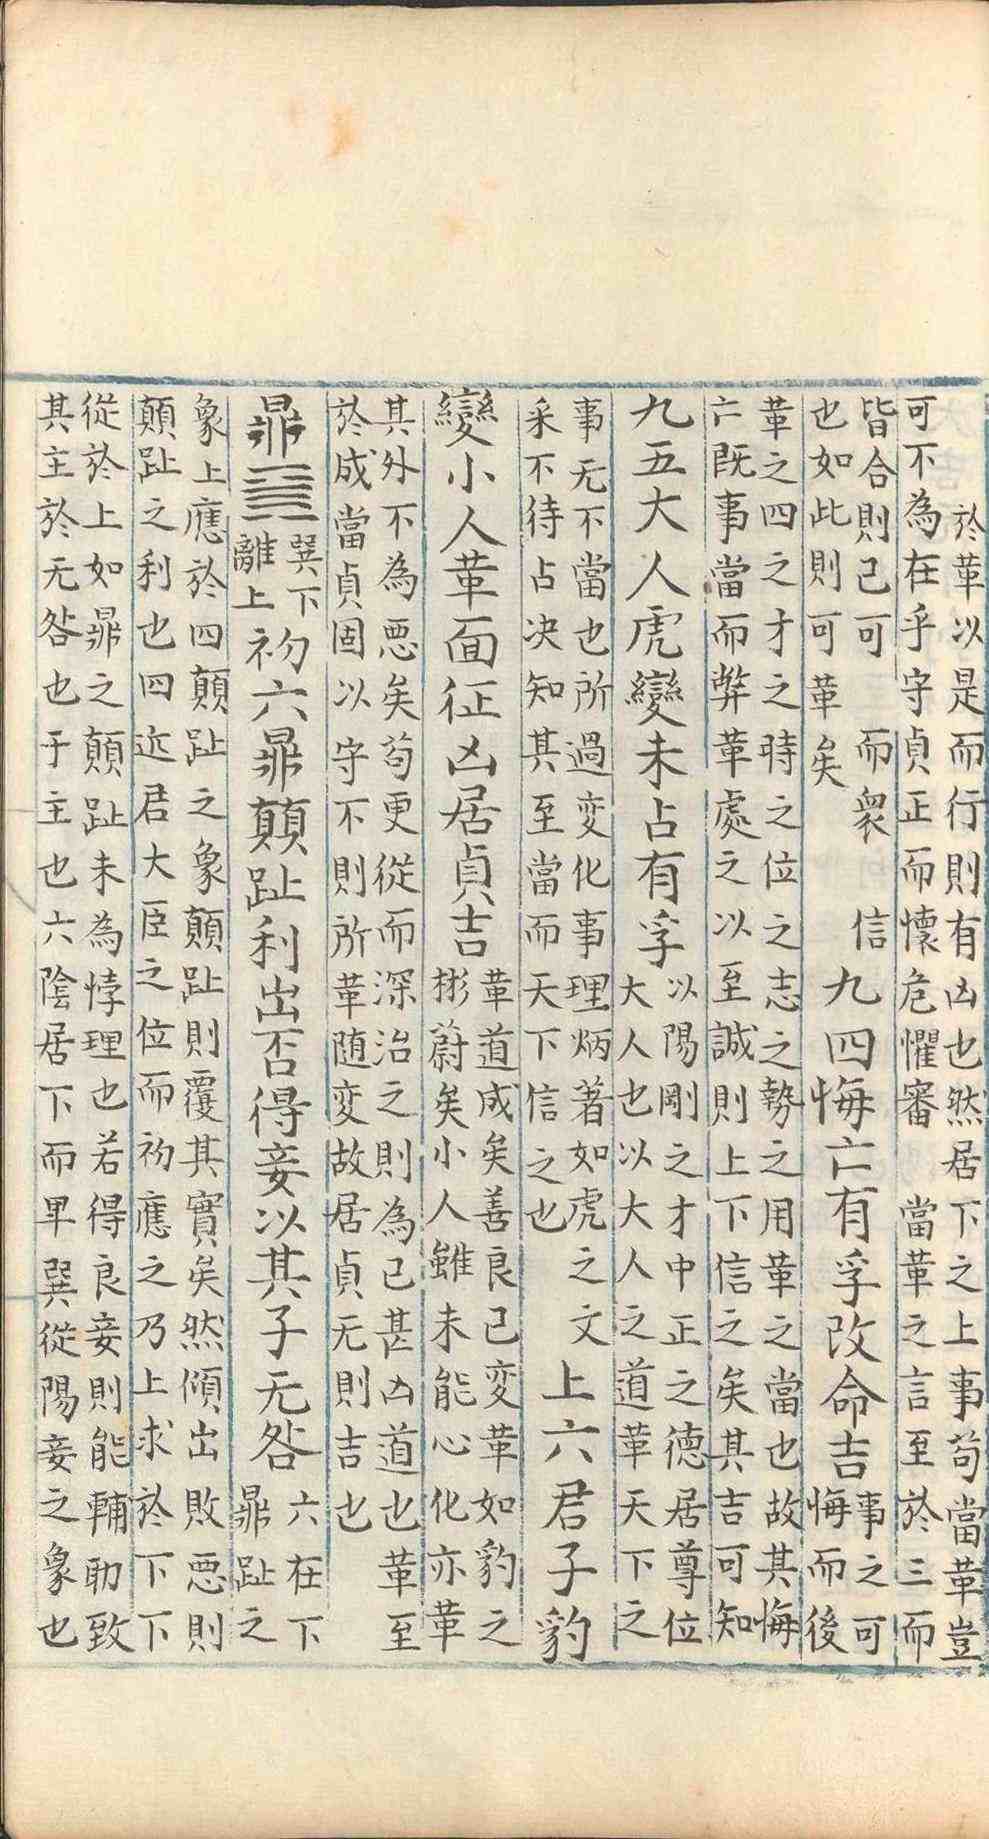 於革以是而行則有凶也然居下之上事苟當革豈
可不為在乎守貞正而懷危懼審 當革之言至於三而
皆合則已可 而衆 信
也如此則可革矣
九四悔亡有孚改命吉
事之可
悔而後
革之四之才之時之位之志之勢之用革之當也故其悔
亡既事當而弊革處之以至誠則上下信之矣其吉可知
九五大人虎變未占有孚
以陽剛之才中正之德居尊位
大人也以大人之道革天下之
事无不當也所過变化事理炳著如虎之文
采不待占决知其至當而天下信之也
上六君子豹
變小人革面征凶居貞吉
革道成矣善良已变革如豹之
彬蔚矣小人雖未能心化亦革
其外不為悪矣苟更從而深治之則為已甚凶道也革至
於成當貞固以守不則所革随变故居貞无則吉也
鼎䷱
巽下
離上
初六鼎顛趾利出否得妾以其子无咎
六在下
鼎趾之
象上應於四顛趾之象顛趾則覆其實矣然傾出敗悪則
顛趾之利也四近君大臣之位而初應之乃上求於下下
從於上如鼎之顛趾未為悖理也若得良妾則能輔助致
其主於无咎也于主也六陰居下而卑巽從陽妾之象也